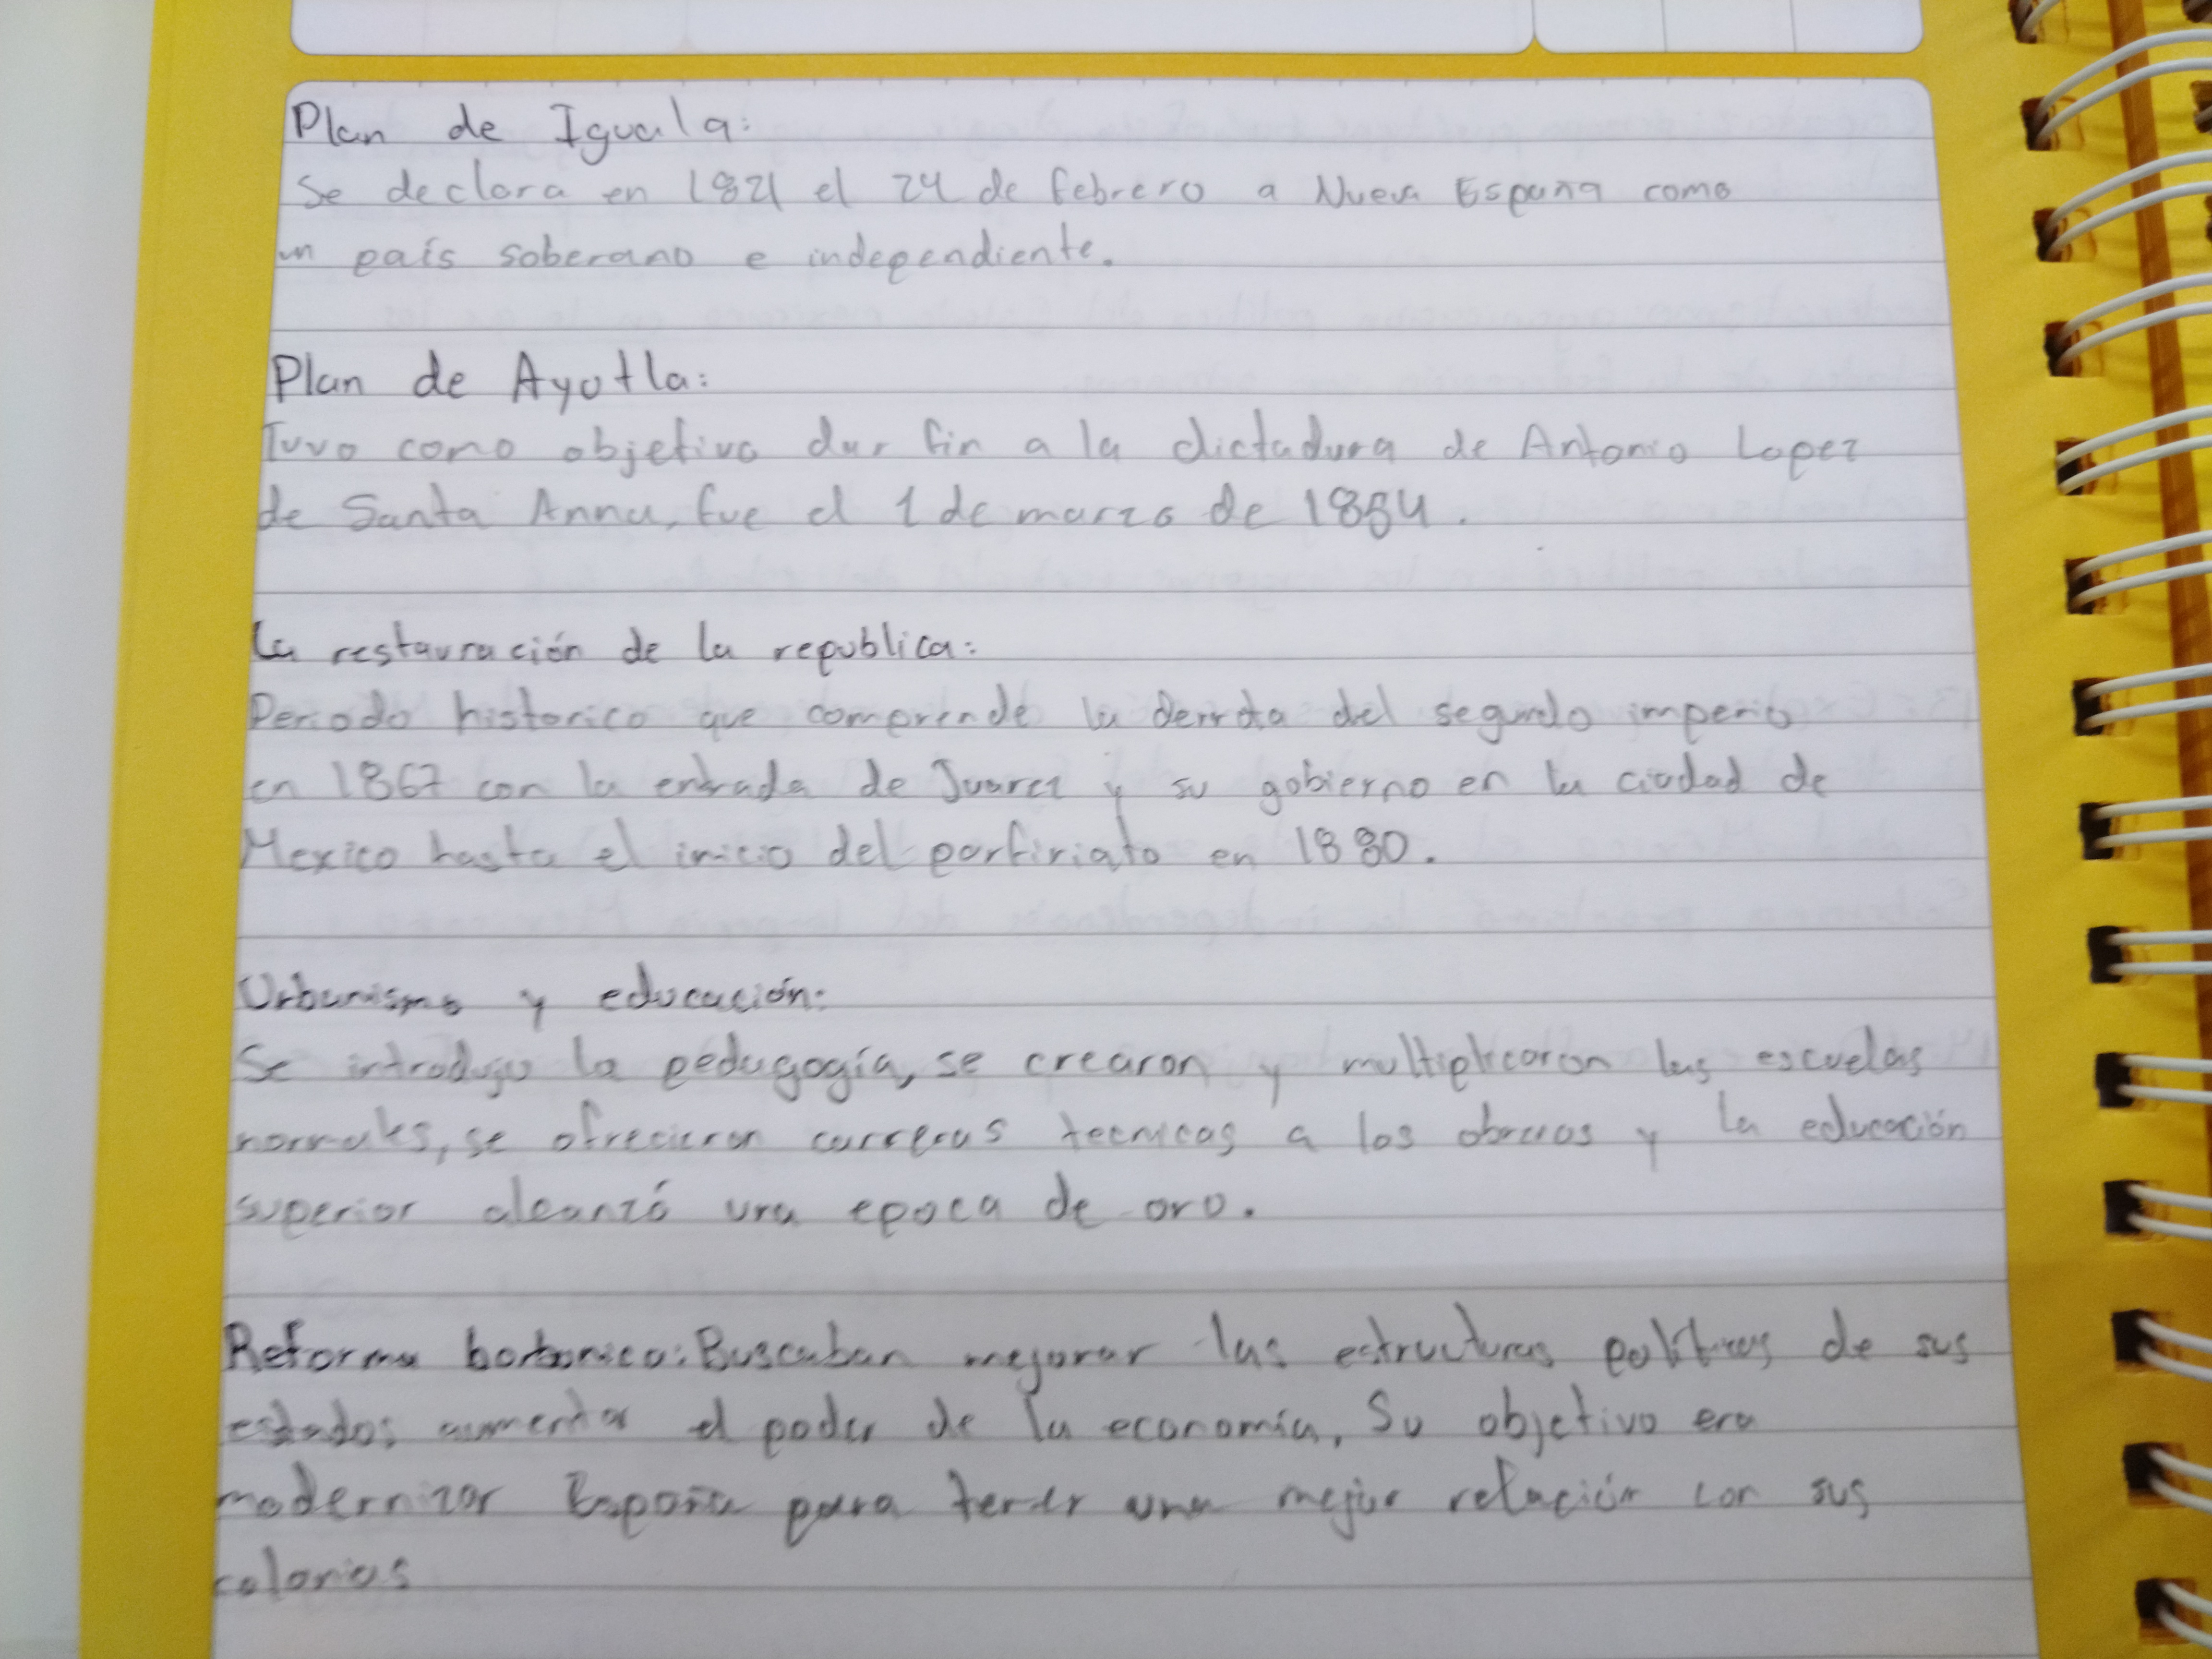 Plan de Iguala:
Se declara en 1821 el 24 de febrero a Nueva España como
un país soberano e independiente.
Plan de Ayotla:
Tuvo como objetivo dar fin a la dictadura de Antonio Lopez
de Santa Anna, fue el 1 de marzo de 1854.
La restauración de la republica:
Periodo historico que comprende la derrota del segundo imperio
en 1867 con la entrada de Juarez y su gobierno en la ciudad de
Mexico hasta el inicio del porfiriato en 1880.
Urbanismo y educación:
Se introdujo la pedagogía, se crearon y multiplicaron las escuelas
normales, se ofrecieron carreras tecnicas a los obreros y la educación
superior alcanzó una epoca de oro.
Reforma borbonica: Buscaban mejorar las estructuras politicas de sus
estados, aumentar el poder de la economía, Su objetivo era
modernizar España para tener una mejor relación con sus
colonias